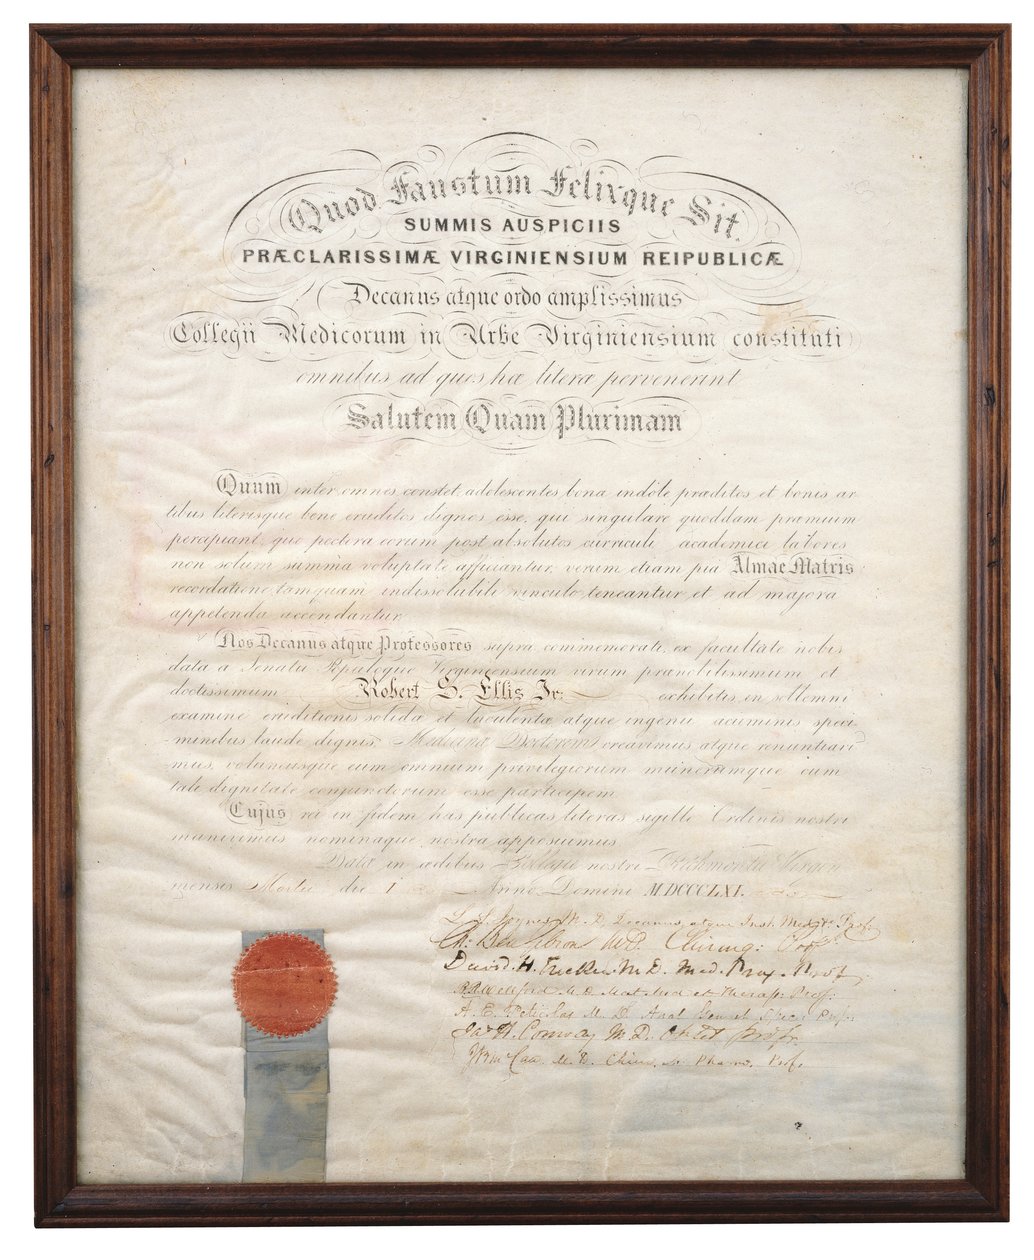 Quod Faustum Felixque Sit.
SUMMIS AUSPICIIS
PRÆCLARISSIMÆ VIRGINIENSIUM REIPUBLICÆ
Decanus atque ordo amplissimus
Collegii Medicorum in Urbe Virginiensium constituti
omnibus ad quos hæ literæ pervenerint
Salutem Quam Plurimam
Quum inter omnes constet, adolescentes bona indole præditos et bonis ar
tibus literisque bene eruditos dignos esse, qui singulare quoddam præmium
percipiant, quo pectora eorum post absolutos curriculi academici labores
non solum summa voluptate afficiantur, verum etiam pia Almae Matris
recordatione tamquam indissolubili vinculo teneantur et ad majora
appetenda accendantur.
Nos Decanus atque Professores supra commemorati, ex facultate nobis
data a Senatu Populoque Virginiensium virum prænobilissimum et
doctissimum Robert S. Ellis Jr: exhibitis en sollemni
examine eruditionis solidæ et luculentæ atque ingenii acuminis speci-
-minibus laude dignis, Medicinæ Doctorem creavimus atque renuntiavi
mus, volumusque eum omnium privilegiorum munerumque cum
tali dignitate conjunctorum esse participem
Cujus rei in fidem has publicas literas sigillo Ordinis nostri
munivimus nominaque nostra apposuimus
Data in ædibus Collegii nostri Richmondiæ Virgin
iensis Martii die 1 Anno Domini MDCCCLXI.
L. S. Joynes M. D. Decanus, atque Inst. Med. Prof.
Ch: Bell Gibson M.D. Chirurg: Prof.
David. H. Tucker. M. D. Med. Prax. Prof.
M. D. Mat. Med. et Therap: Prof:
A. E. Peticolas M. D. Anat. Gen. et Spec: Prof.
Jas H. Conway M. D. Obstet Profr.
M. D. Chim. et Pharm. Prof.